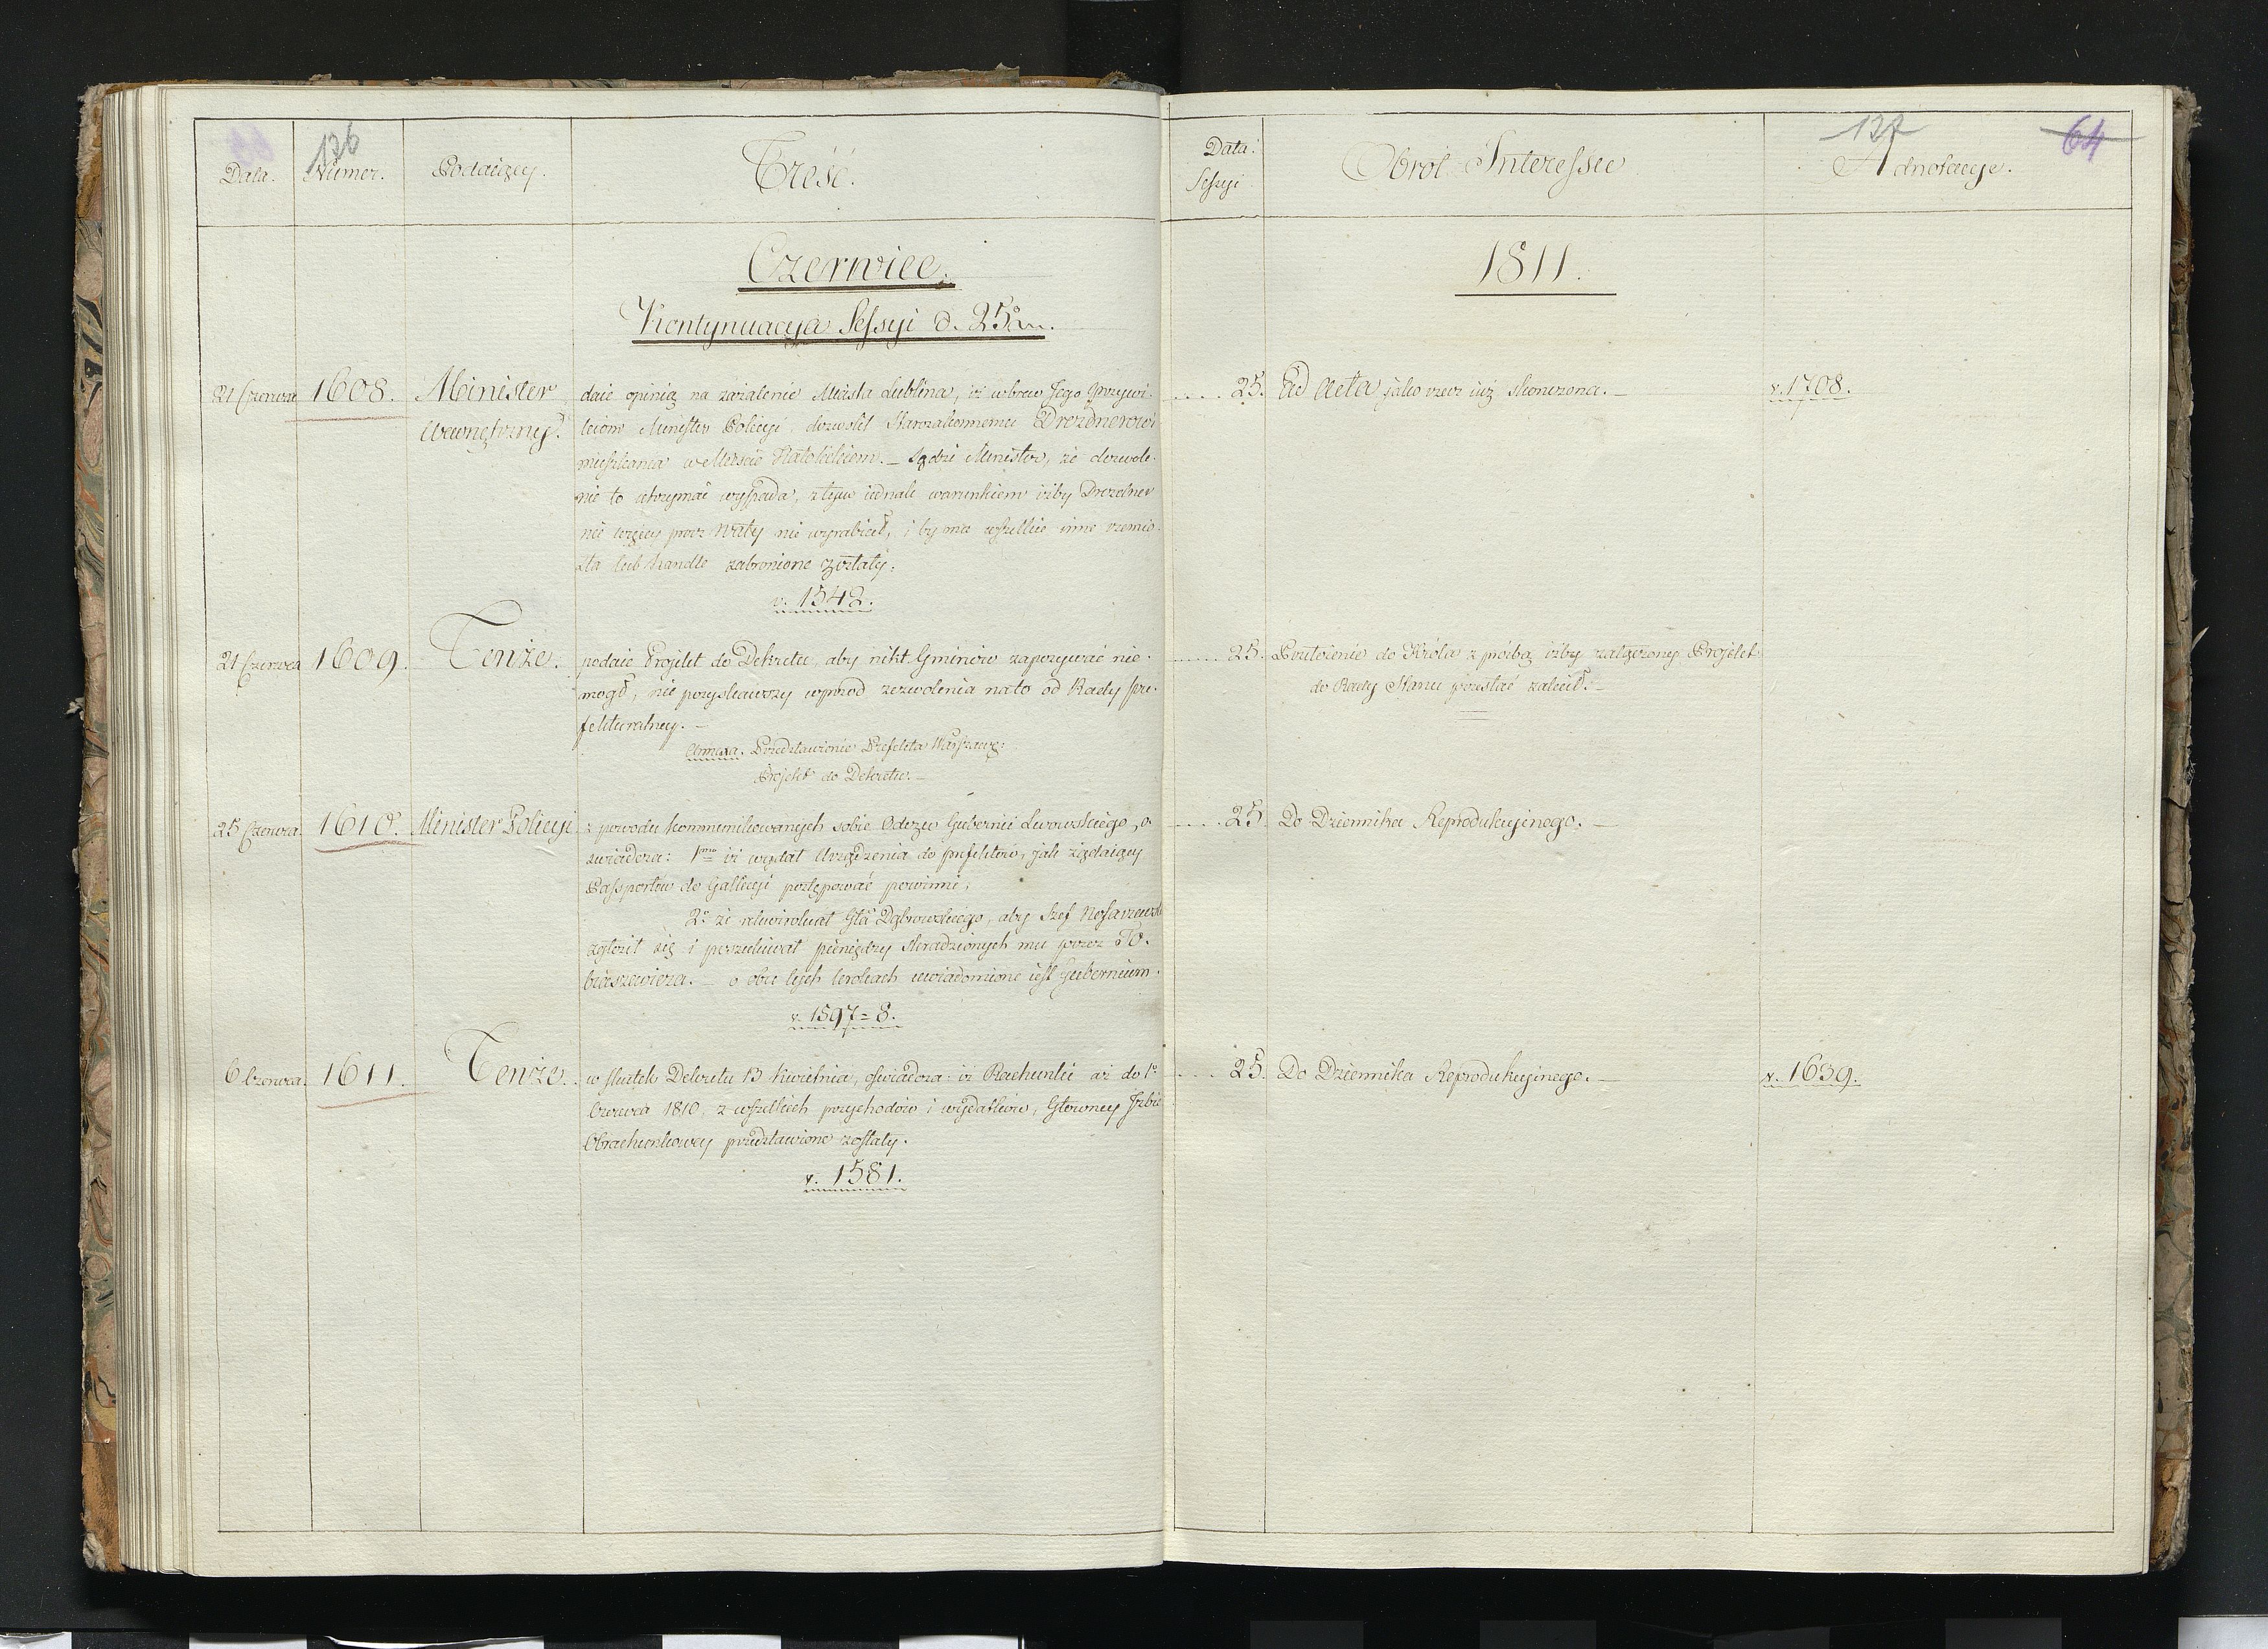 126
Data.
Numer.
Podaiący.
Treść.
Data:
Sessyi
Obrót Interessu
127
64
Adnotacye.
Czerwiec.
1811.
Kontynuacya Sessyi d. 25° m.
21 Czerwca
1608.
Minister
Wewnętrzny.
daie opinią na zażalenie Miasta Lublina, iż wbrew Jego przywi-
leiom Minister Policyi dozwolił Starozakonnemu Drezdnerowi
mieszkania w Mieście Katolickiem. — Sądzi Minister, że dozwole-
nie to utrzymać wypada, z tym iednak warunkiem iżby Drezdner
nic więcey prócz Waty nie wyrabiał, i by mu wszelkie inne rzemio-
sła lub handle zabronione zostały.
v. 1542.
25.
Ad Acta jako rzecz iuż skończona. —
v. 1708.
21 Czerwca
1609.
Tenże.
podaie Projekt do Dekretu, aby nikt Gminów zapozywać nie-
mogł, nie pozyskawszy wprzod zezwolenia na to od Rady Pre-
fekturalney. —
Annexa. Przedstawienie Prefekta Warszaws:
Projekt do Dekretu. —
25.
Przełożenie do Króla z prośbą iżby załączony Projekt
do Rady Stanu przesłać zalecił. —
25 Czerwca.
1610.
Minister Policyi
z powodu kommunikowanych sobie Odezw Gubernii Lwowskiego, o-
świadcza: 1mo iż wydał Urządzenia do prefektów, jak żądaiący
Passportów do Gallicyi postępować powinni,
2° że rekwirował Gła Dąbrowskiego, aby Szef Nosarzewski
zgłosił się i poszukiwał pieniędzy skradzionych mu przez To-
biaszewicza. — o obu tych krokach uwiadomione iest Gubernium.
v. 1597=8.
25
Do Dziennika Reprodukcyinego. —
6 Czerwca.
1611.
Tenże.
w skutek Dekretu 13 Kwietnia, oświadcza: iż Rachunki aż do 1°
Czerwca 1810, z wszelkich przychodów i wydatków, Główney Izbie
Obrachunkowey przedstawione zostały.
v. 1581.
25.
Do Dziennika Reprodukcyinego. —
v. 1639.